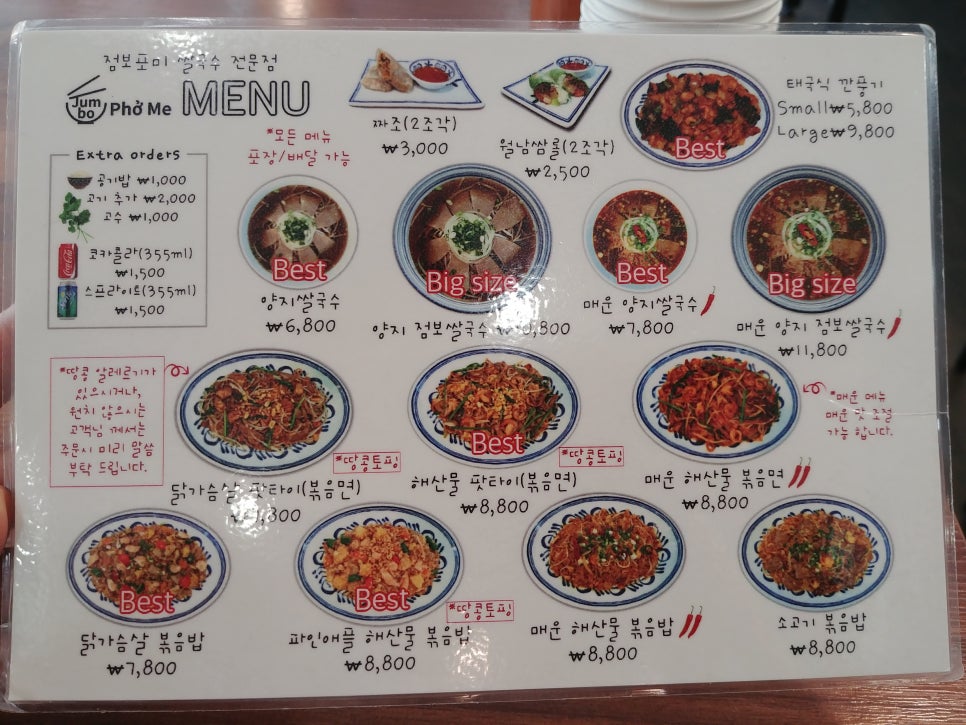 점보포미 쌀국수 전문점
Jumbo
Phở Me
MENU
짜조(2조각)
₩3,000
월남쌈롤(2조각)
₩2,500
Best
태국식 깐풍기
Small₩5,800
Large₩9,800
*모든 메뉴
포장/배달 가능
Extra orders
공기밥 ₩1,000
고기 추가 ₩2,000
고수 ₩1,000
코카콜라(355ml)
₩1,500
스프라이트(355ml)
₩1,500
Best
양지쌀국수
₩6,800
Big size
양지 점보쌀국수
Best
매운 양지쌀국수
₩7,800
Big size
매운 양지 점보쌀국수
₩11,800
*땅콩 알레르기가
있으시거나,
원치 않으시는
고객님 께서는
주문시 미리 말씀
부탁 드립니다.
*땅콩토핑
닭가슴살 팟타이(볶음면)
Best
*땅콩토핑
해산물 팟타이(볶음면)
₩8,800
매운 해산물 볶음면
₩8,800
*매운 메뉴
매운 맛 조절
가능 합니다.
Best
닭가슴살 볶음밥
₩7,800
Best
*땅콩토핑
파인애플 해산물 볶음밥
₩8,800
매운 해산물 볶음밥
₩8,800
소고기 볶음밥
₩8,800